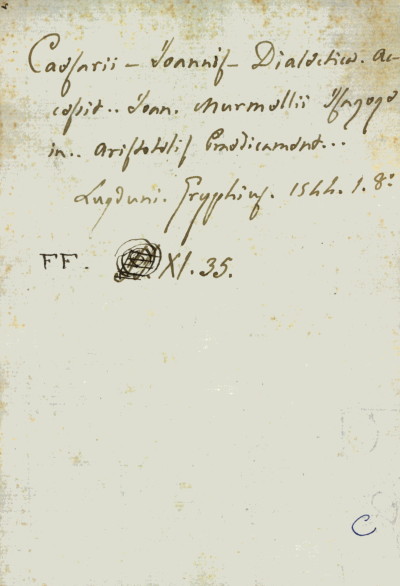 Caesarii - Joannis - Dialectica. Ac-
cessit.. Joan. Murmellii Isagoge
in.. Aristotelis Praedicament...
Lugduni. Gryphius. 1544. 1. 8º
FF. XI. 35.
C